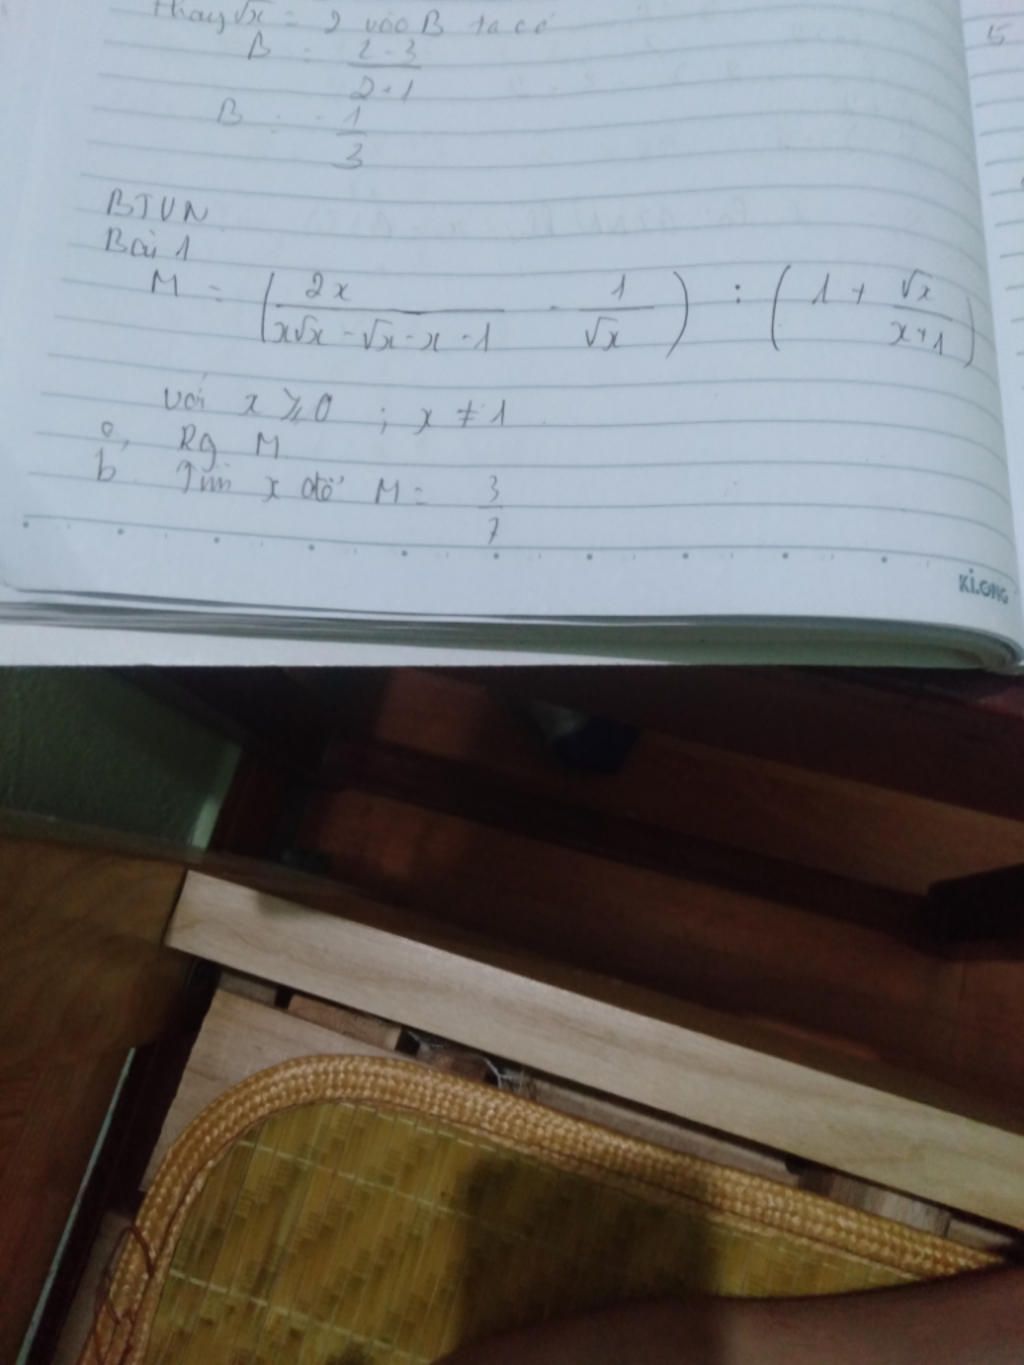 Thay √x = 2 vào B ta có
B = 2-3 / 2+1
B = -1 / 3
BTVN
Bài 1
M = ( 2x / x√x - √x - x - 1 - 1 / √x ) : ( 1 + √x / x+1 )
với x ≥ 0 ; x ≠ 1
a, Rg M
b Tìm x để M = 3 / 7
KLONG
5